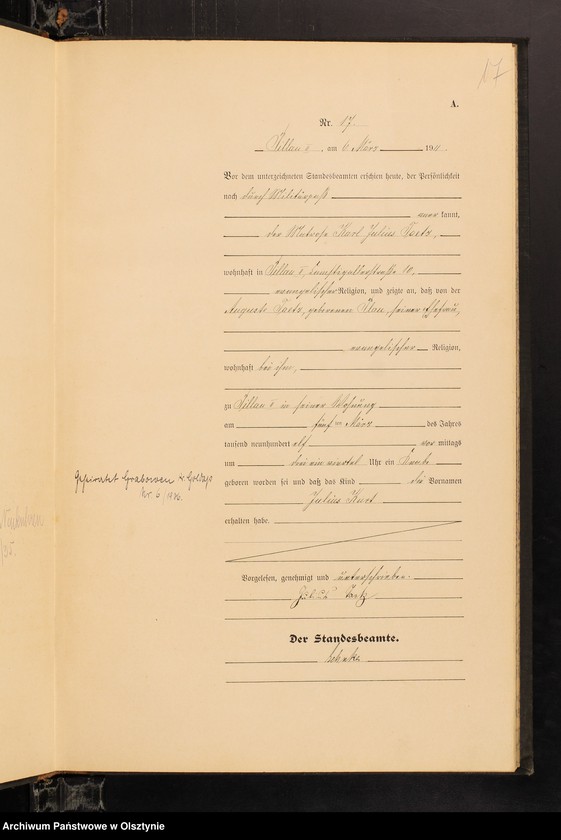 17
A.
Nr. 17.
Pillau I, am 6 März 1911.
Vor dem unterzeichneten Standesbeamten erschien heute, der Persönlichkeit
nach durch Militärpaß
aner kannt,
der Matrose Karl Julius
wohnhaft in Pillau I, 10,
evangelischer Religion, und zeigte an, daß von der
Auguste geborenen Klau, seiner Ehefrau,
evangelischer Religion,
wohnhaft bei ihm,
zu Pillau I in seiner Wohnung
am fünf ten März des Jahres
tausend neunhundert elf vor mittags
um drei ein viertel Uhr ein Knabe
geboren worden sei und daß das Kind die Vornamen
Julius Kurt
erhalten habe.
Geheiratet Grabowen Kr. Goldap
Nr. 6/1936.
Vorgelesen, genehmigt und unterschrieben.
Julius
Der Standesbeamte.
Archiwum Państwowe w Olsztynie